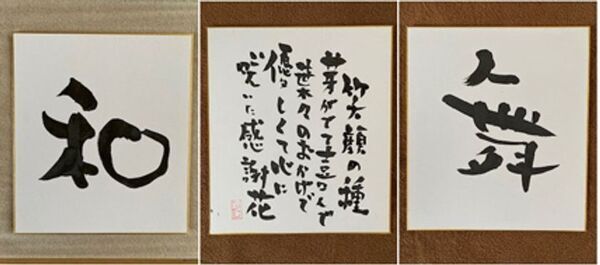 和
笑顔の種
芽がでて喜んで
々のおかげで
優しくて心に
咲いた感謝花
舞